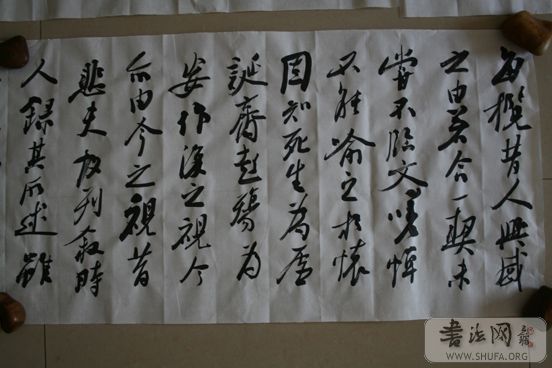 每攬昔人興感
之由若合一契未
嘗不臨文嗟悼
不能喻之於懷
固知死生為虛
誕齊彭殤為
妄作後之視今
亦由今之視昔
悲夫故列敘時
人錄其所述雖
書法网
WWW.SHUFA.ORG